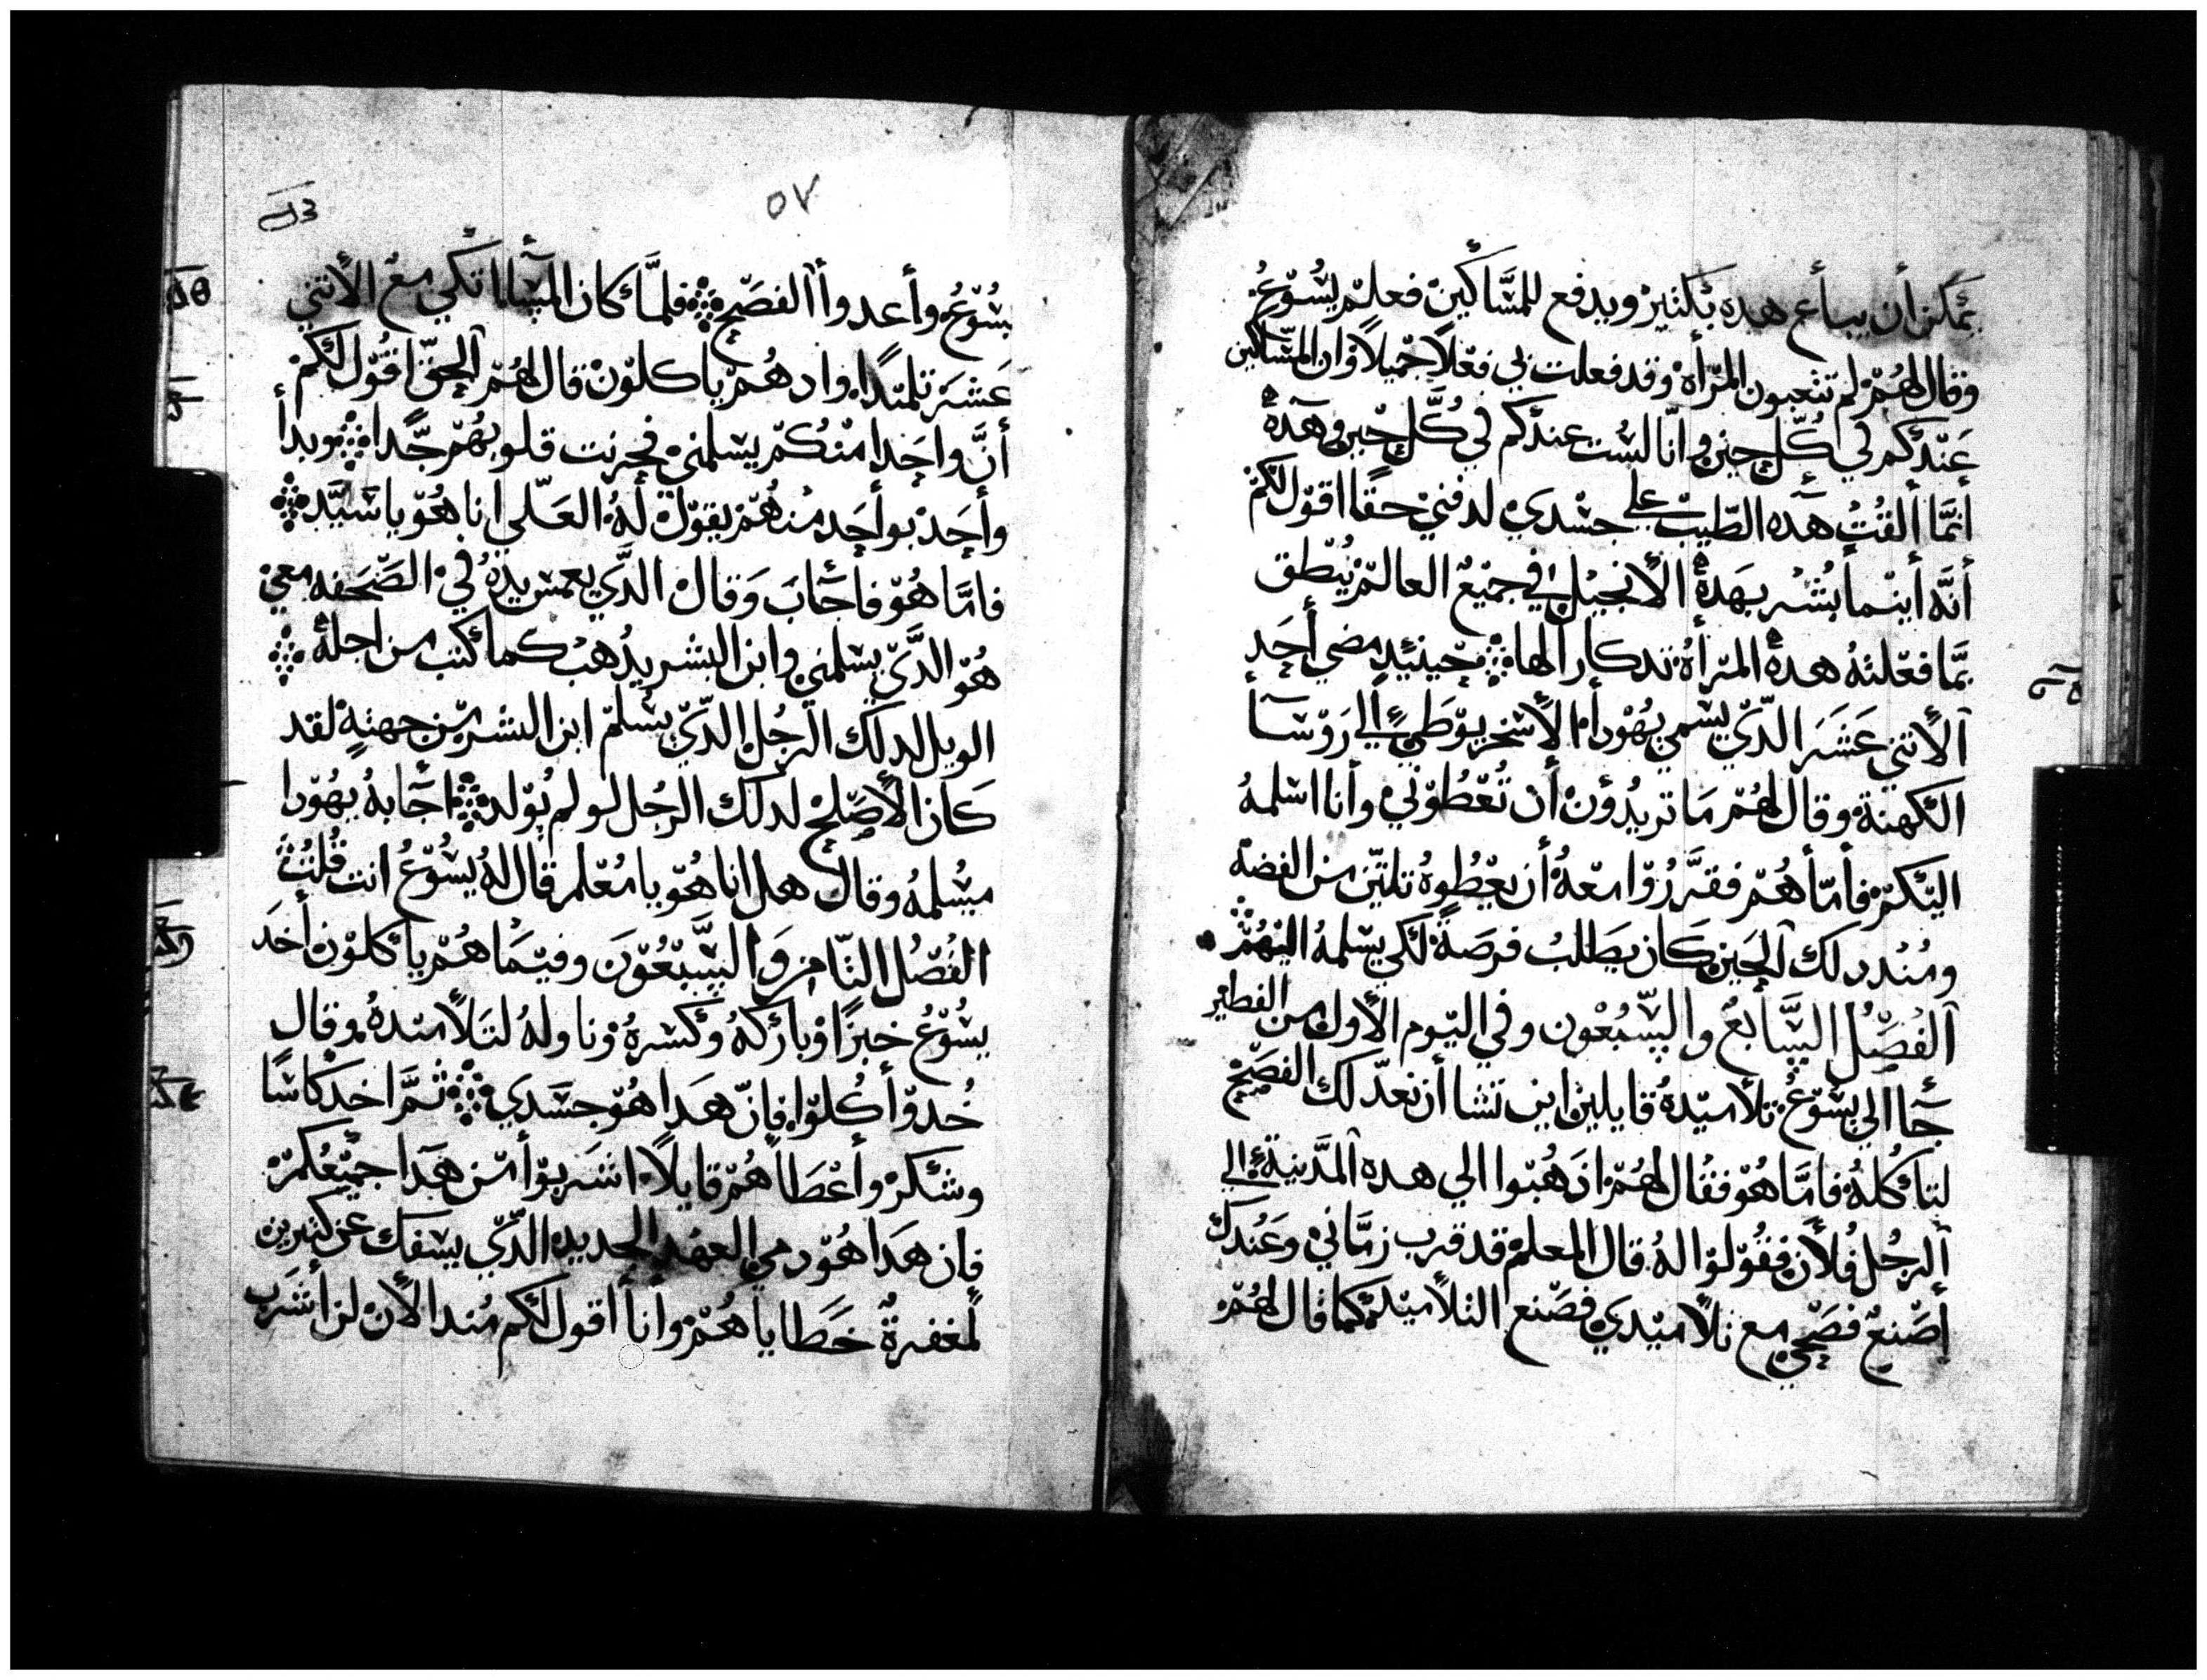 يمكن أن يباع هده بكتير ويدفع للمساكين فعلم يسوع
وقال لهم لم تتعبون المرأة وقد فعلت بي فعلاً جميلاً وان المساكين
عندكم في كل حين وانا لست عندكم في كل حين وهده
انما ألقت هده الطيب على جسدي لدفني حقا اقول لكم
أنه أينما بشر بهدة الأنجيل في جميع العالم ينطق
بما فعلته هده المرأة تدكارا لها حينيد مضي أحد
الأتني عشر الدي يسمي يهودا الأسخريوطي الي روسا
الكهنة وقال لهم ما تريدون أن تعطوني وأنا اسلمه
اليكم فأما هم فقرروا معه أن يعطوه تلتين من الفضة
ومند دلك الحين كان يطلب فرصة لكي يسلمه اليهم
الفصل السابع والسبعون وفي اليوم الأول من الفطير
جا الي يسوع تلاميده قايلين اين تشا أن نعد لك الفصح
لتاكله فاما هو فقال لهم ادهبوا الي هده المدينة الي
الرجل فلان فقولوا له قال المعلم قد قرب زماني وعندك
أصنع فصحي مع تلاميدي فصنع التلاميد كما قال لهم
٥٧
يسوع وأعدوا الفصح فلما كان المسا اتكي مع الأتني
عشر تلميدا واد هم ياكلون قال لهم الحق اقول لكم
أن واحدا منكم يسلمني فحزنت قلوبهم جدا وبدأ
واحد بواحد منهم يقول له العلي انا هو يا سيد
فاما هو فاجاب وقال الدي يغمس يده في الصحفه معي
هو الدي يسلمني وابن البشر يدهب كما كتب من اجله
الويل لدلك الرجل الدي يسلم ابن البشر من جهته لقد
كان الأصلح لدلك الرجل لو لم يولد اجابه يهودا
مسلمه وقال هل انا هو يا معلم قال له يسوع انت قلت
الفصل التامن والسبعون وفيما هم ياكلون أخد
يسوع خبزا وباركه وكسره وناوله لتلاميده وقال
خدوا كلوا فان هدا هو جسدي ثم اخد كاسا
وشكر وأعطاهم قايلا اشربوا من هدا جميعكم
فان هدا هو دمي العهد الجديد الدي يسفك عن كتيرين
لمغفرة خطاياهم وأنا أقول لكم مند الأن لن أشرب